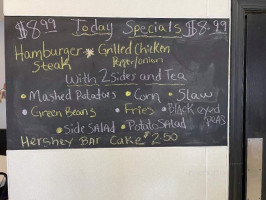 $8.99 Today Specials $8.99
Hamburger Steak
Grilled Chicken
Pepper/onion
With 2 Sides and Tea
• Mashed Potatoes • Corn • Slaw
• Green Beans • Fries • Black eyed Peas
• Side SALAD • Potato SALAD
Hershey BAR Cake $2.50